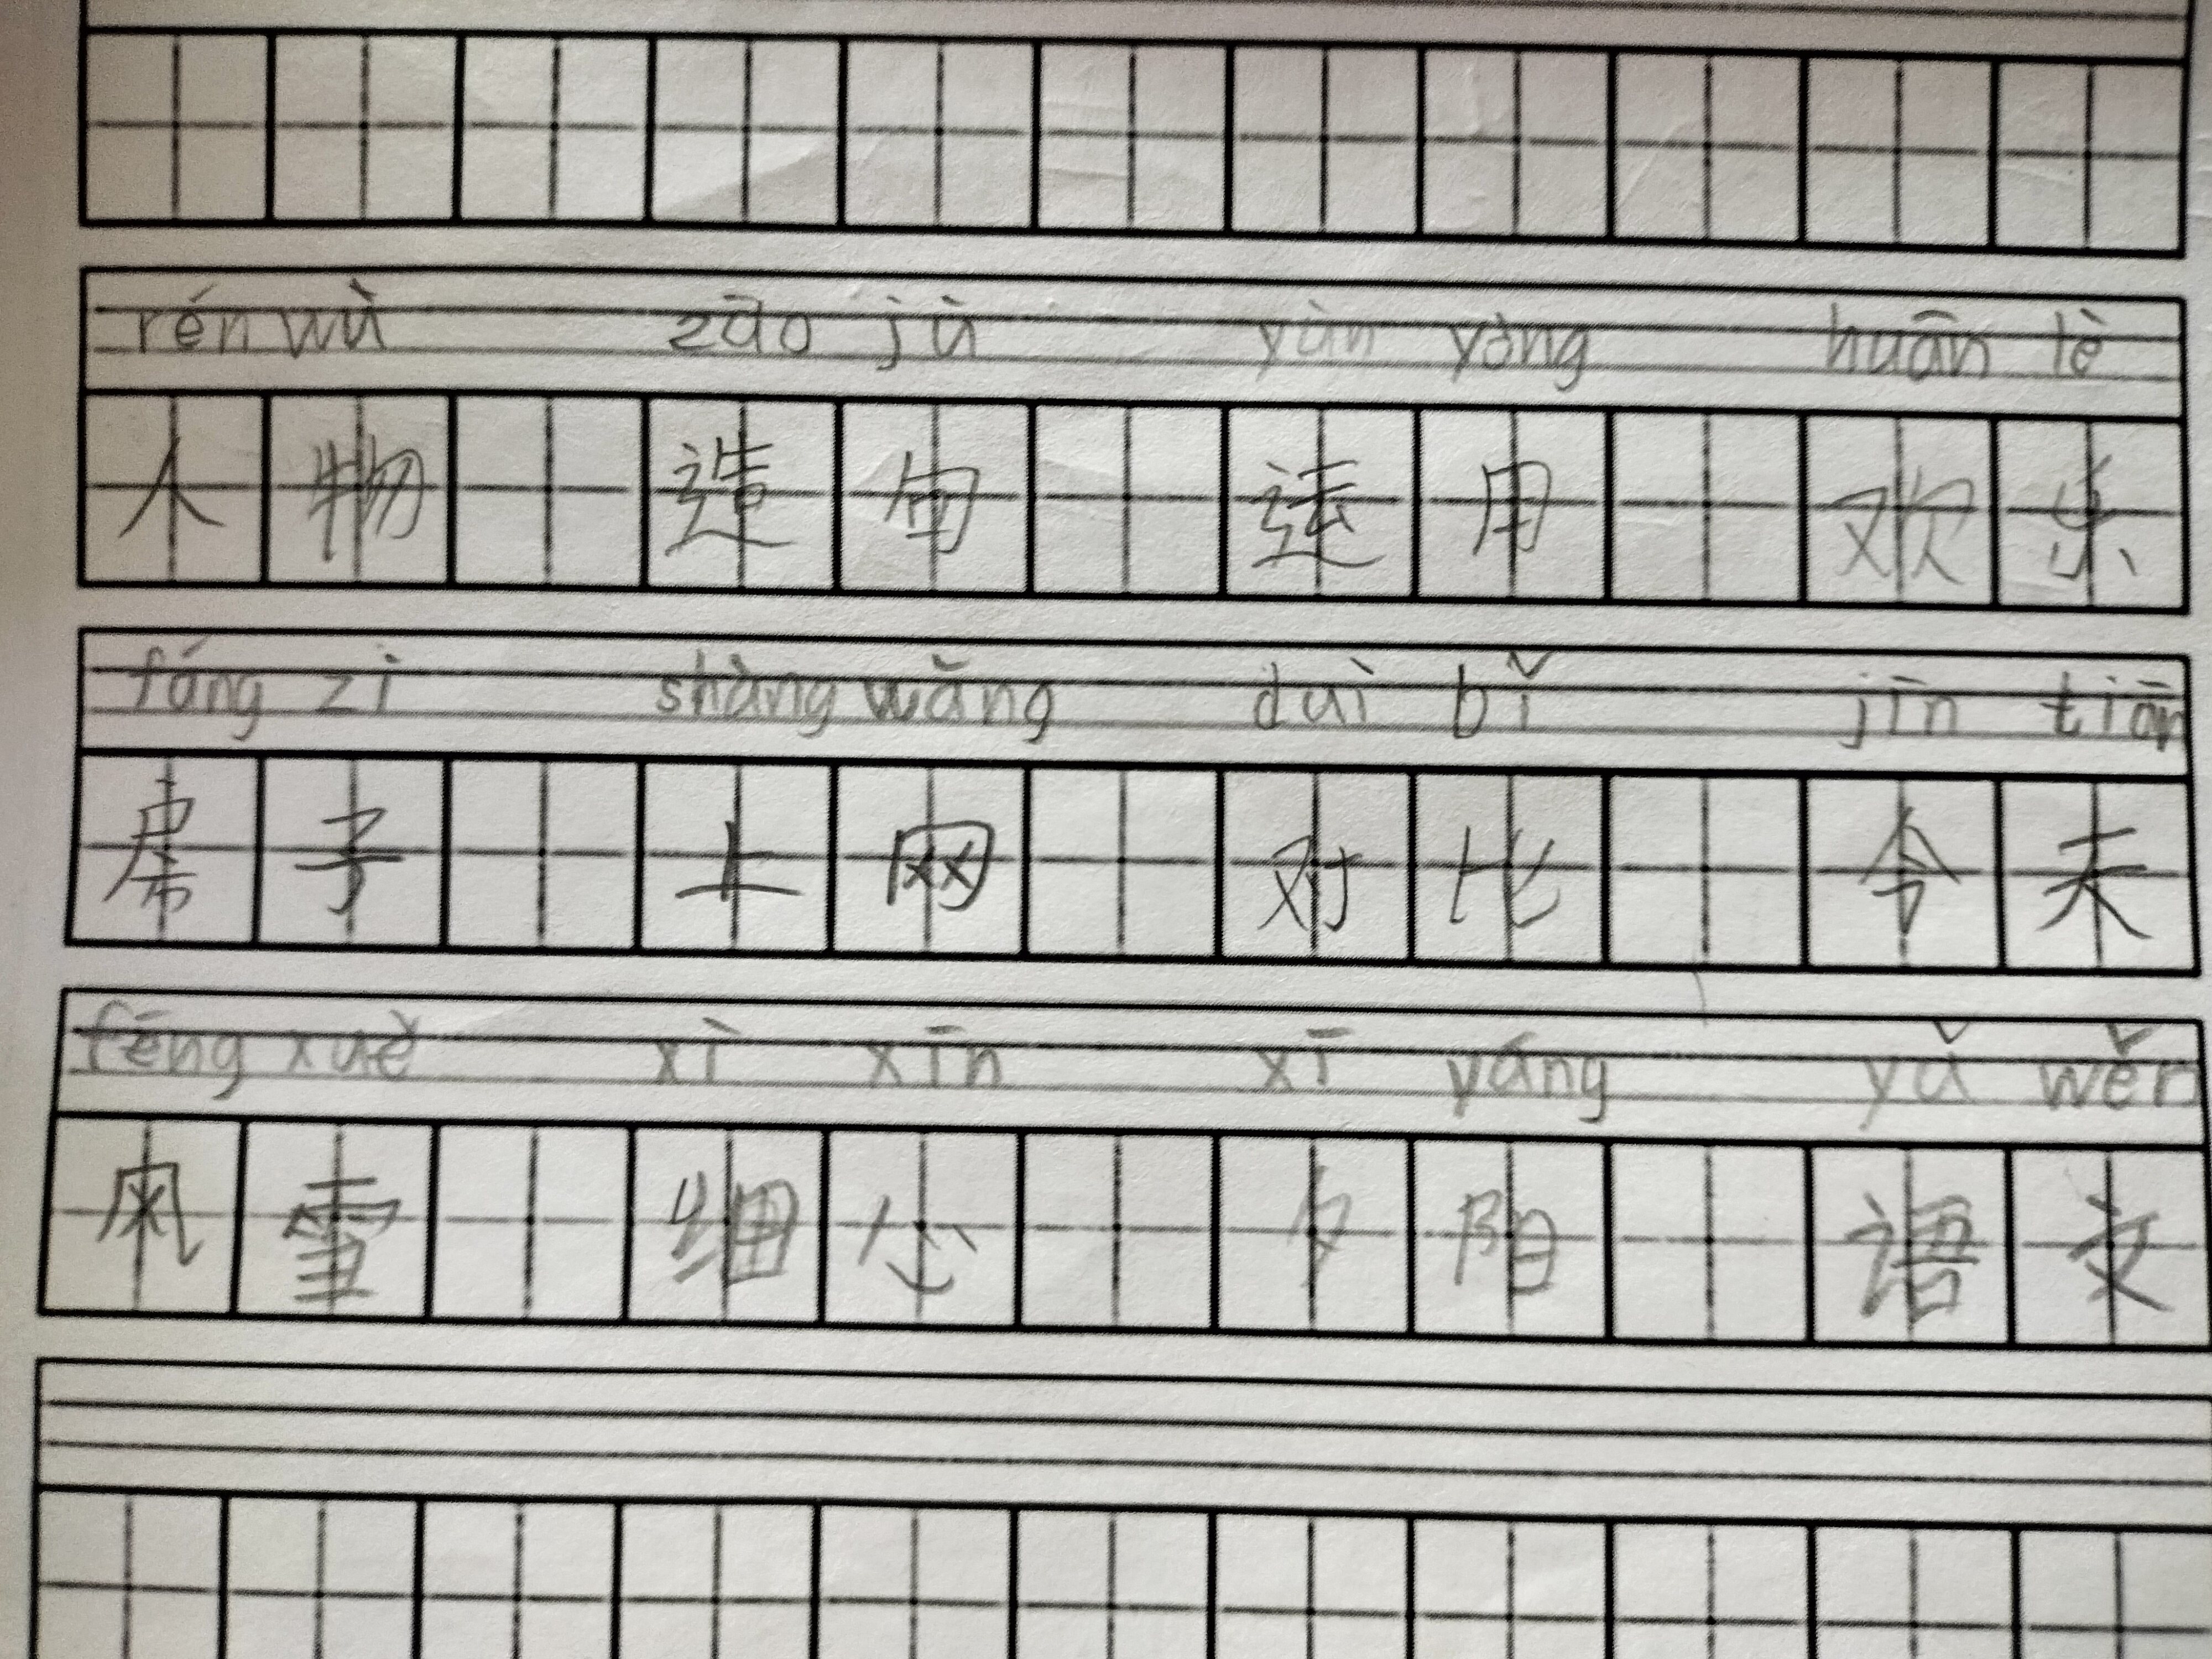 rén wù zāo jù yùn yòng huān lè
人 物 造 句 运 用 欢 乐
fáng zi shàng wǎng duì bǐ jīn tiān
房 子 上 网 对 比 今 天
fēng xuě xì xīn xī yáng yǔ wěn
风 雪 细 心 夕 阳 语 文